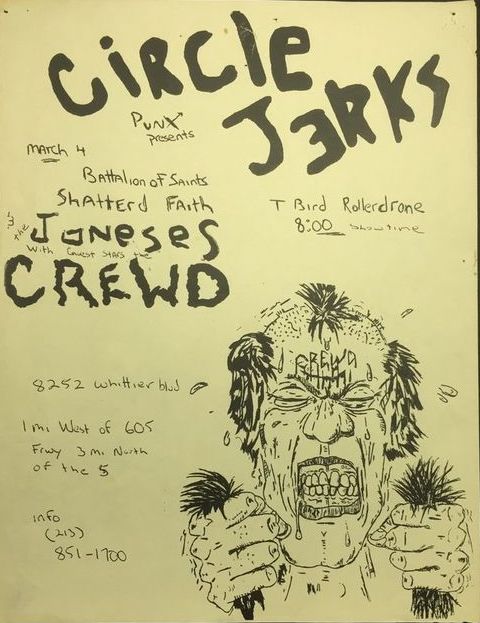 CIRCLE
JERKS
PUNX
presents
MARCH 4
Battalion of Saints
Shatterd Faith
& the Joneses
With Guest Stars the
CREWD
T Bird Rollerdrone
8:00 showtime
CREWD
8252 whittier blvd
1 mi West of 605
Frwy 3 mi North
of the 5
info
(213)
851-1700